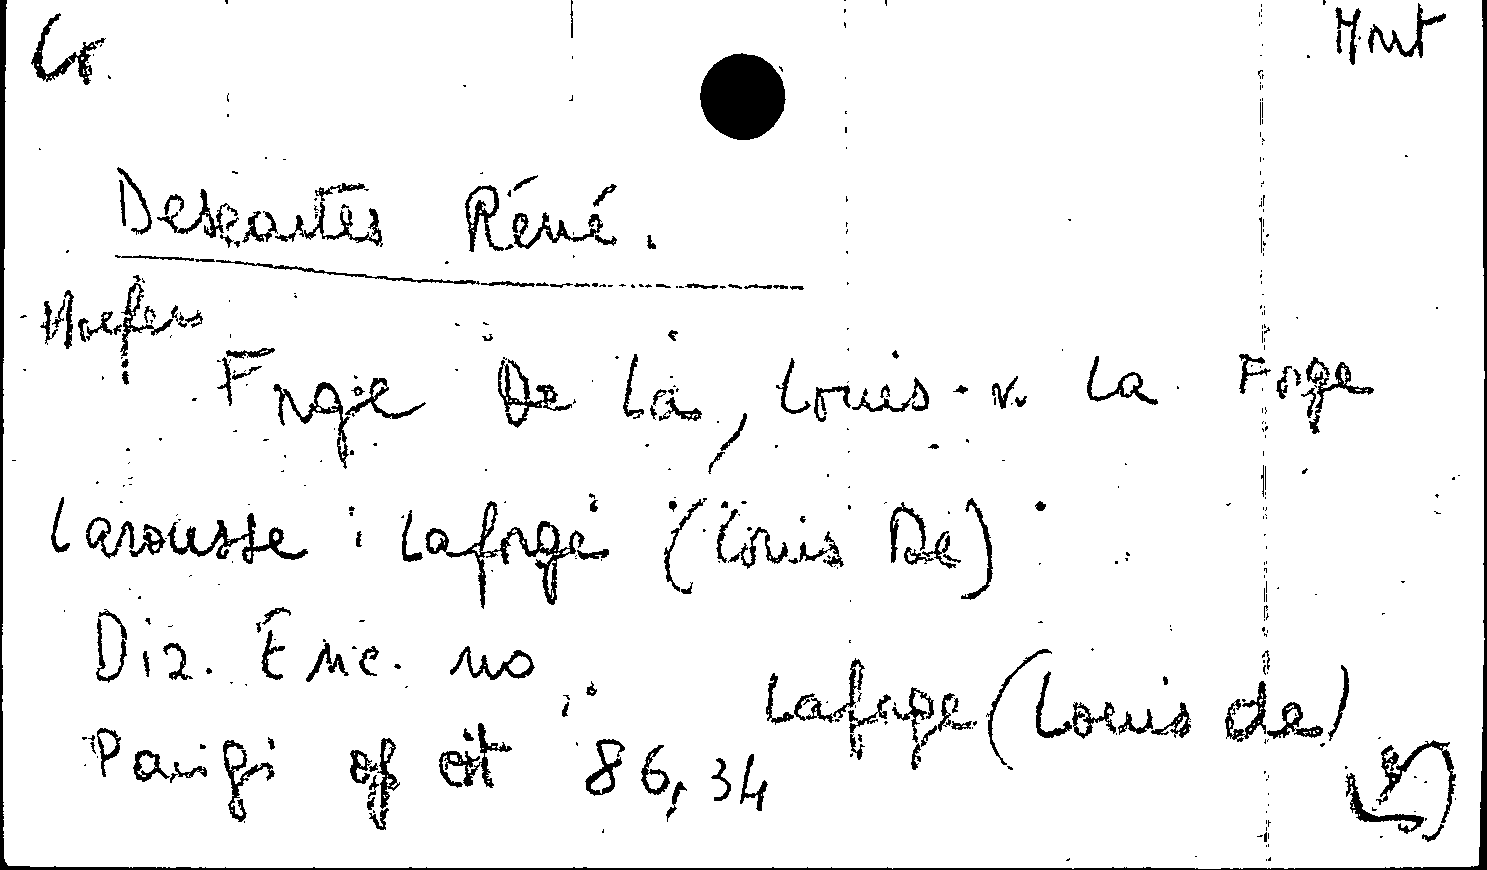 Cr
Mnt
Descartes Réné.
Hoefer
Forge De La, Louis. v. La Forge
Larousse : Laforge (Louis De)
Diz. Enc. no
Laforge (Louis de)
Parigi op cit 86,34